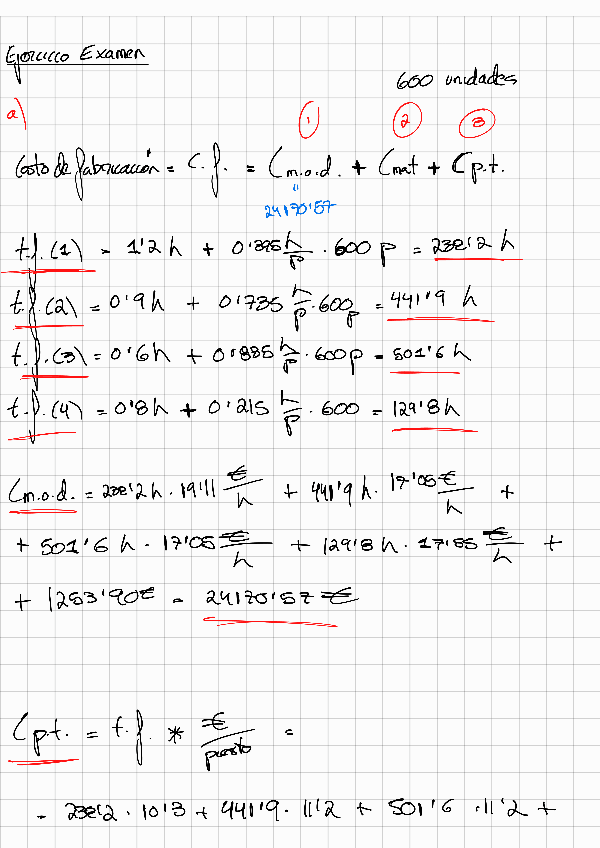 Ejercicio Examen
600 unidades
a)
1 2 3
Costo de fabricación = C.f. = Cm.o.d. + Cmat + Cp.t.
"
24170'57
t.f.(1) = 1'2 h + 0'395 h/p · 600 p = 238'2 h
t.f.(2) = 0'9 h + 0'735 h/p · 600 p = 441'9 h
t.f.(3) = 0'6 h + 0'835 h/p · 600 p = 501'6 h
t.f.(4) = 0'8 h + 0'215 h/p · 600 = 129'8 h
Cm.o.d. = 238'2 h · 19'11 €/h + 441'9 h · 17'05 €/h +
+ 501'6 h · 17'05 €/h + 129'8 h · 17'55 €/h +
+ 1253'90 € = 24170'57 €
Cp.t. = t.f. * €/puesto =
= 238'2 · 10'3 + 441'9 · 11'2 + 501'6 · 11'2 +